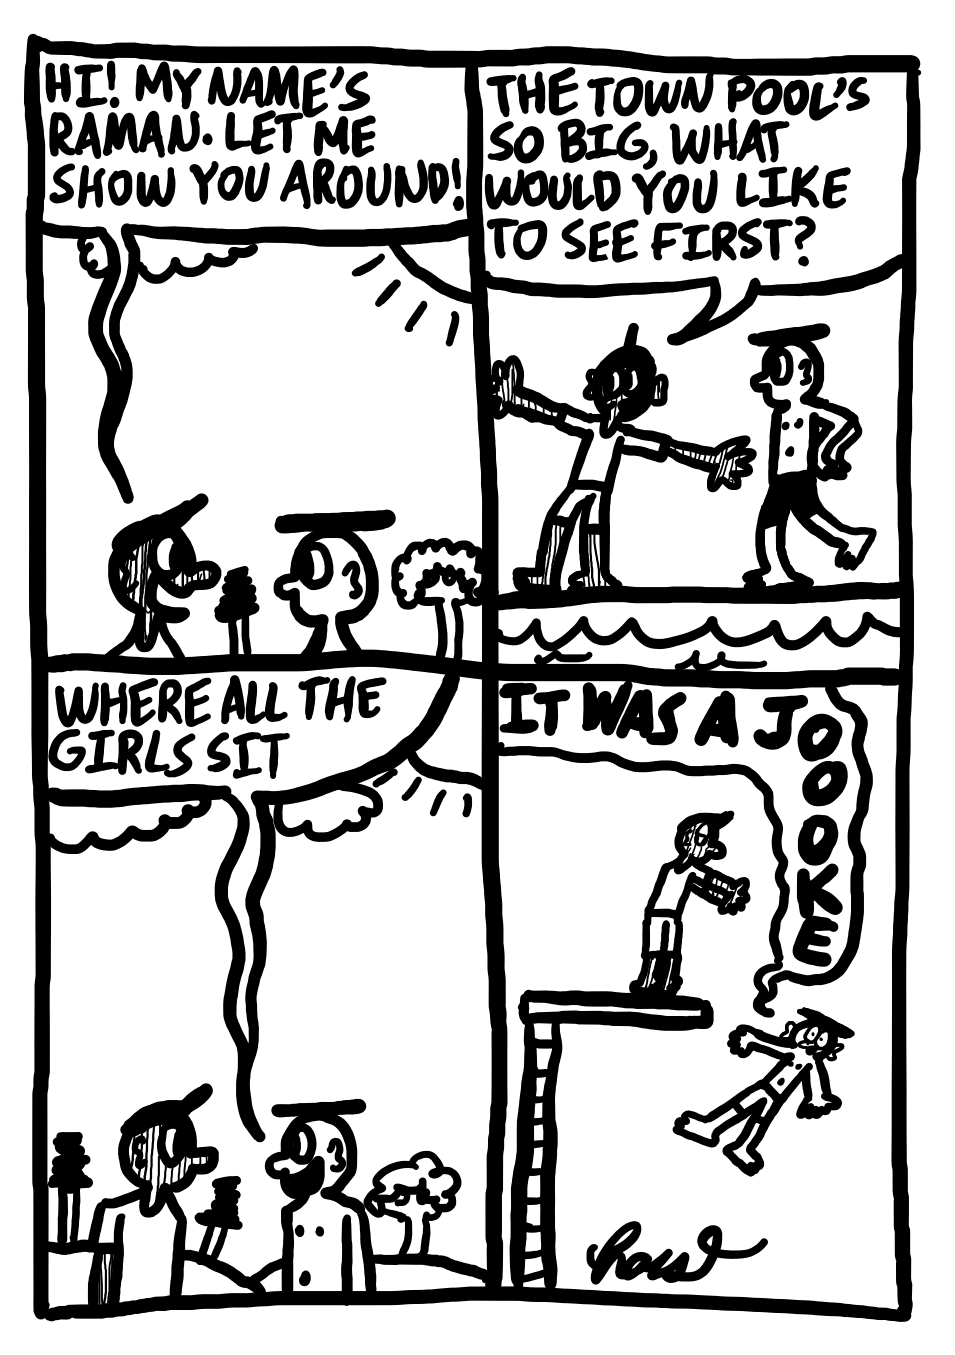 HI! MY NAME'S
RAMAN. LET ME
SHOW YOU AROUND!
THE TOWN POOL'S
SO BIG, WHAT
WOULD YOU LIKE
TO SEE FIRST?
WHERE ALL THE
GIRLS SIT
IT WAS A JOOOKE